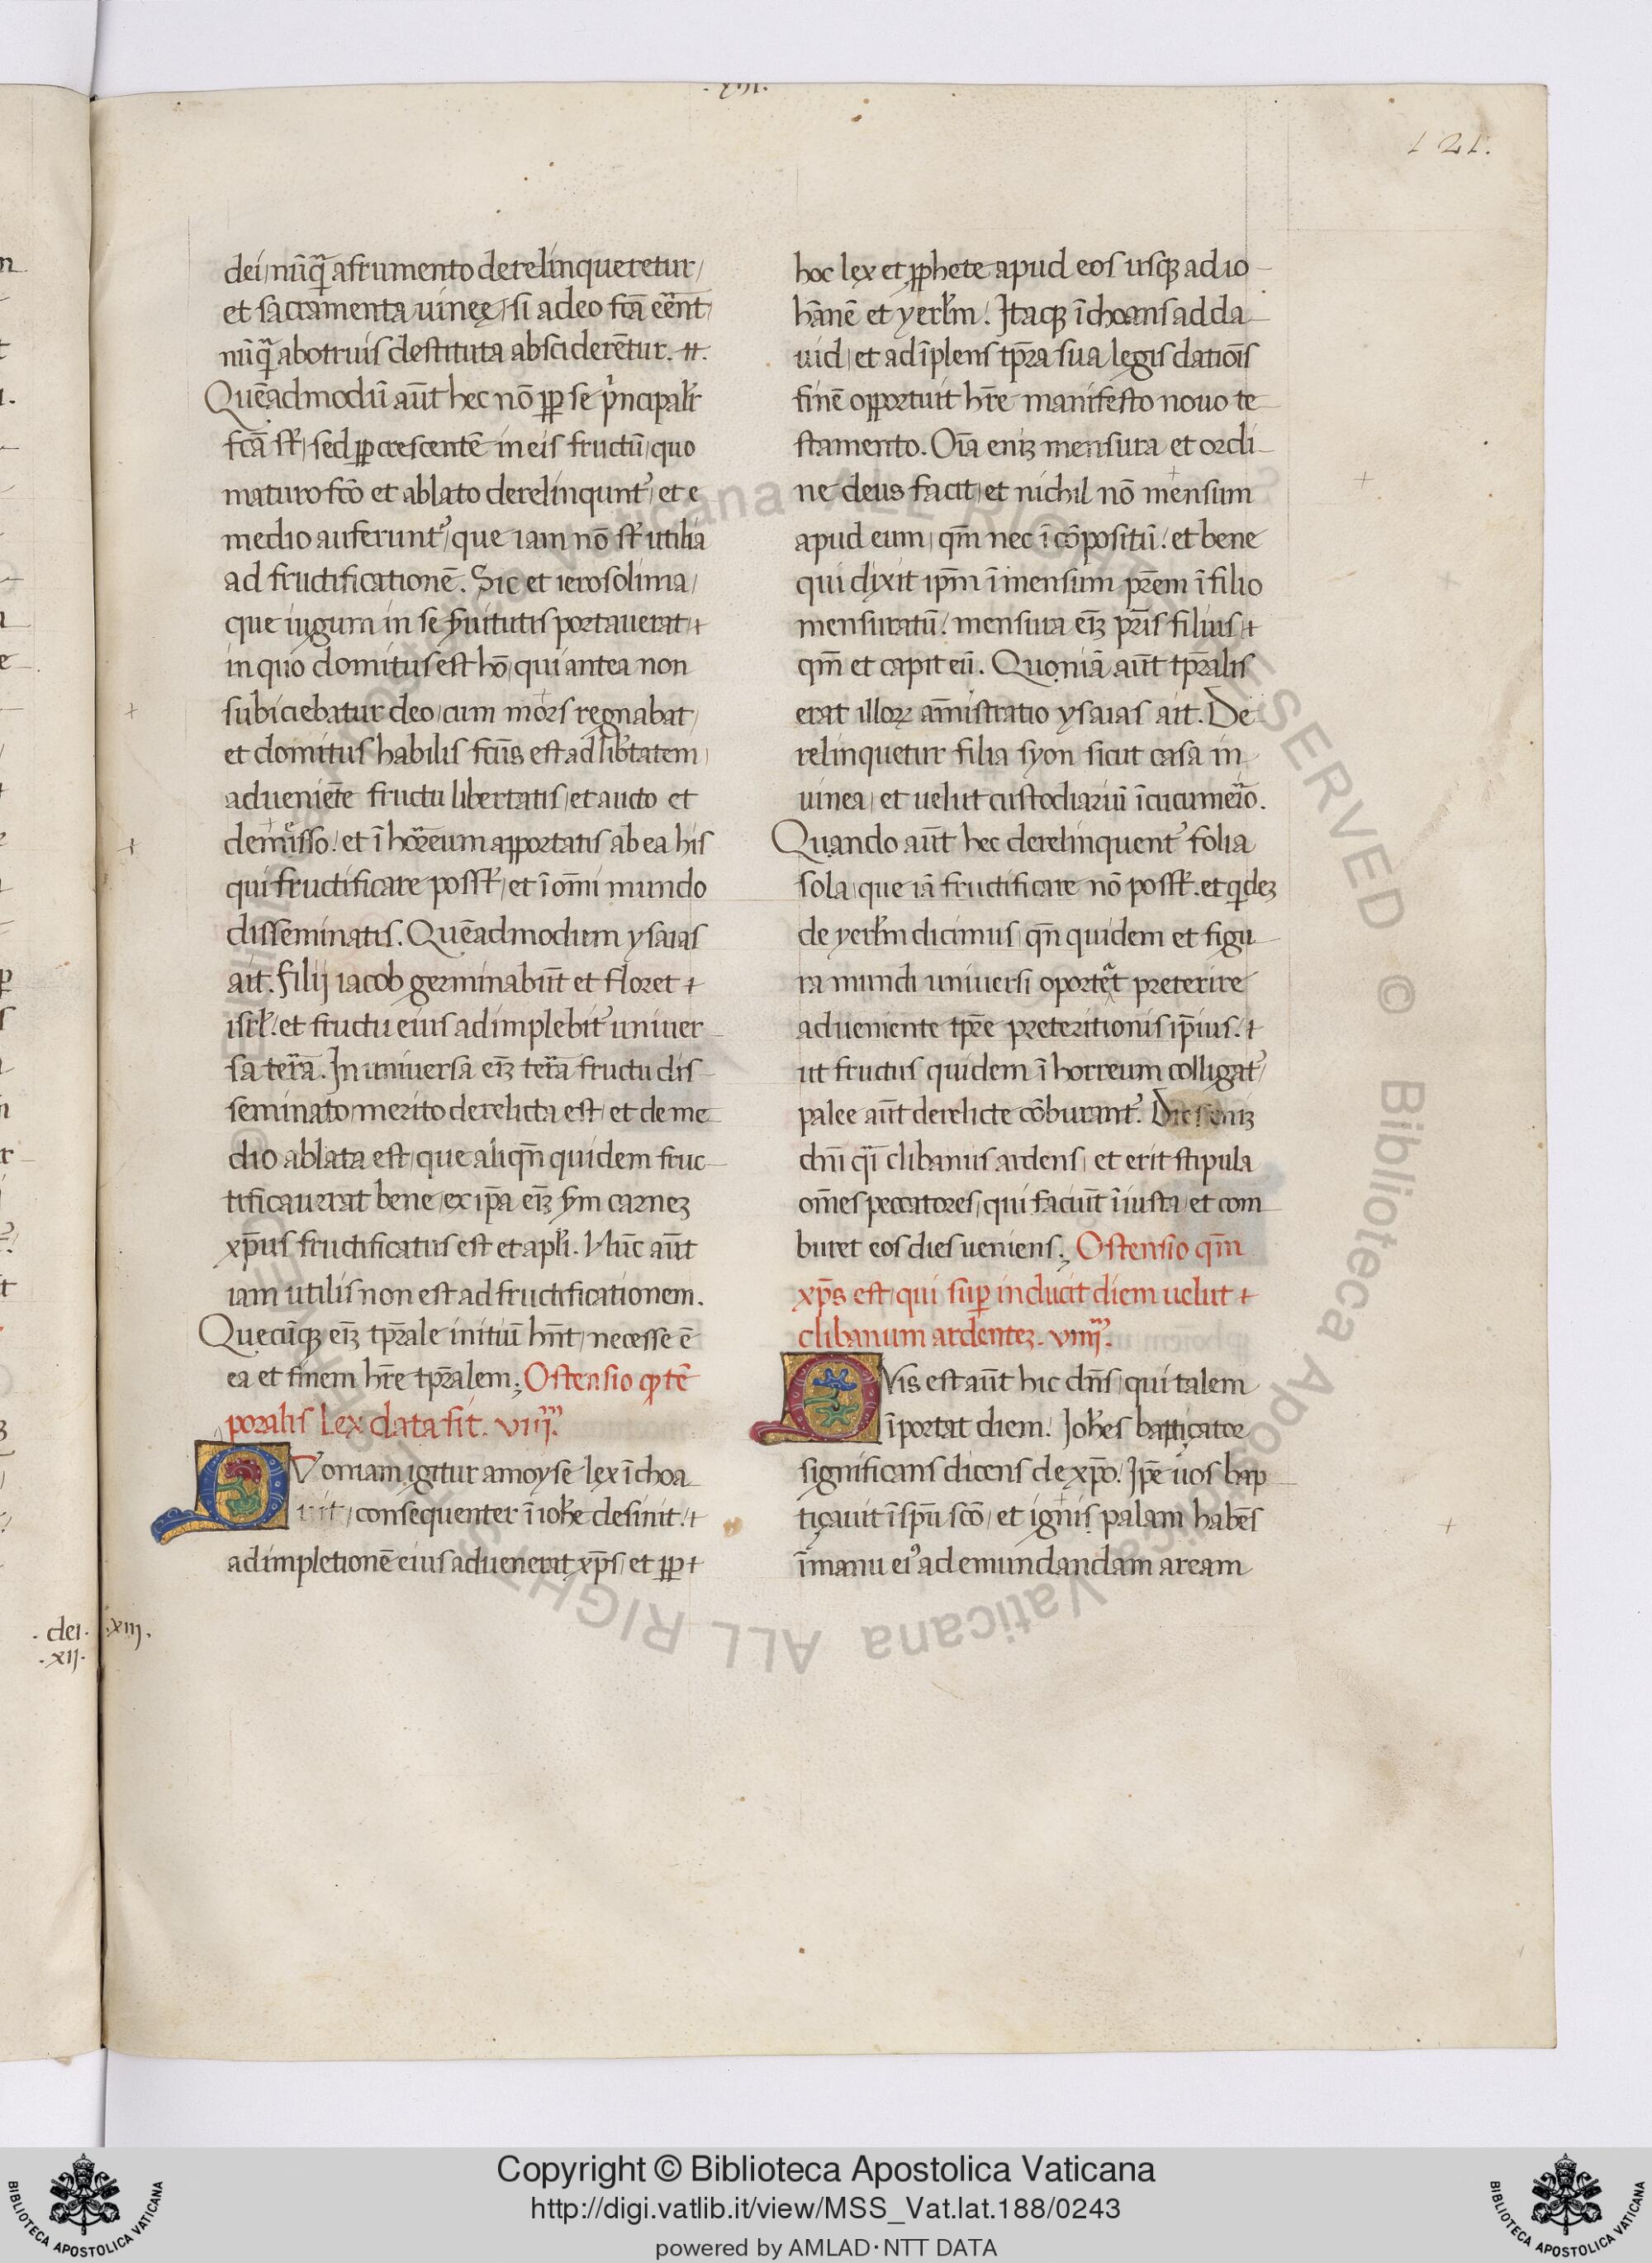 .XIII.
121.
dei, nūq̄ a frumento derelinqueretur,
et sacramenta uineę, si a deo fc̄a eēnt,
nūq̄ a botruis destituta absciderētur.
Quēadmodū aūt hec nō ꝓp se pͥncipalr̄
fc̄a st̄, sed ꝓp crescentē in eis fructū, quo
maturo fcō et ablato derelinqunt᷑, et e
medio auferunt᷑, que iam nō st̄ utilia
ad fructificationē. Sic et ierosolima,
que iugum in se s̄uitutis portauerat,
in quo domitus est hō, qui antea non
subiciebatur deo, cum mors regnabat,
et domitus habilis fc̄us est ad lib̄tatem,
adueniēte fructu libertatis, et aucto et
demesso. et ī horreum apportatis ab ea his
qui fructificare possēt, et ī om̄i mundo
disseminatis. Quēadmodum ysaias
ait. filij iacob germinabūt et floret
isrł. et fructu eius adimplebit᷑ uniuer
sa terra. In uniuersa eīꝫ terra fructu dis
seminato, merito derelicta est, et de me
dio ablata est, que aliqn̄ quidem fruc
tificauerat bene, ex ip̄a eīꝫ s̄m carneꝫ
xp̄us fructificatus est et apłi. Nūc aūt
iam utilis non est ad fructificationem.
Quecūqꝫ eīꝫ tp̄rale initiū hn̄t, necesse ē
ea et finem hr̄e tp̄ralem; Ostensio ꝙ tē
poralis lex data sit. VIII.
QVoniam igitur a moyse lex īchoa
uit, consequenter ī ioh̄e desinit.
ad impletionē eius aduenerat xp̄s, et ꝓp
hoc lex et ꝓphete apud eos usqꝫ ad io
hānē et yerłm. Itaqꝫ īchoans ad da
uid, et adīplens tp̄ra sua legis datiōis
finē opportuit hr̄e manifesto nouo te
stamento. Oīa eniꝫ mensura et ordi
ne deus facit, et nichil nō mensum
apud eum, qm̄ nec īcōpositū. et bene
qui dixit ip̄m īmensum prēm ī filio
mensuratū. mensura eīꝫ pr̄is filius
qm̄ et capit eū. Quoniā aūt tp̄ralis
erat illoꝝ am̄istratio ysaias ait. De
relinquetur filia syon sicut casa in
uinea, et uelut custodiariū ī cucumerio.
Quando aūt hec derelinquent᷑ folia
sola, que iā fructificare nō possēt. et qͥdeꝫ
de yerłm dicimus, qn̄ quidem et figu
ra mundi uniuersi oportet preterire
adueniente tp̄re preteritionis ip̄ius.
ut fructus quidem ī horreum colligat᷑,
palee aūt derelicte cōburant᷑. Dies eniꝫ
dn̄i qͣi clibanus ardens, et erit stipula
om̄es peccatores, qui faciūt īiusta, et com
buret eos dies ueniens; Ostensio qm̄
xp̄s est, qui suꝑ inducit diem uelut
clibanum ardenteꝫ. VIIII.
QVis est aūt hic dn̄s, qui talem
īportat diem. Joh̄es baptiçator
significans dicens de xp̄o. Ip̄e uos bap
tiçauit ī sp̄u scō, et ignis palam habēs
ī manu ei᷒ ad emundandam aream
.dei.
.xij.
.xiij.
Copyright © Biblioteca Apostolica Vaticana
http://digi.vatlib.it/view/MSS_Vat.lat.188/0243
powered by AMLAD·NTT DATA
BIBLIOTECA APOSTOLICA VATICANA
BIBLIOTECA APOSTOLICA VATICANA